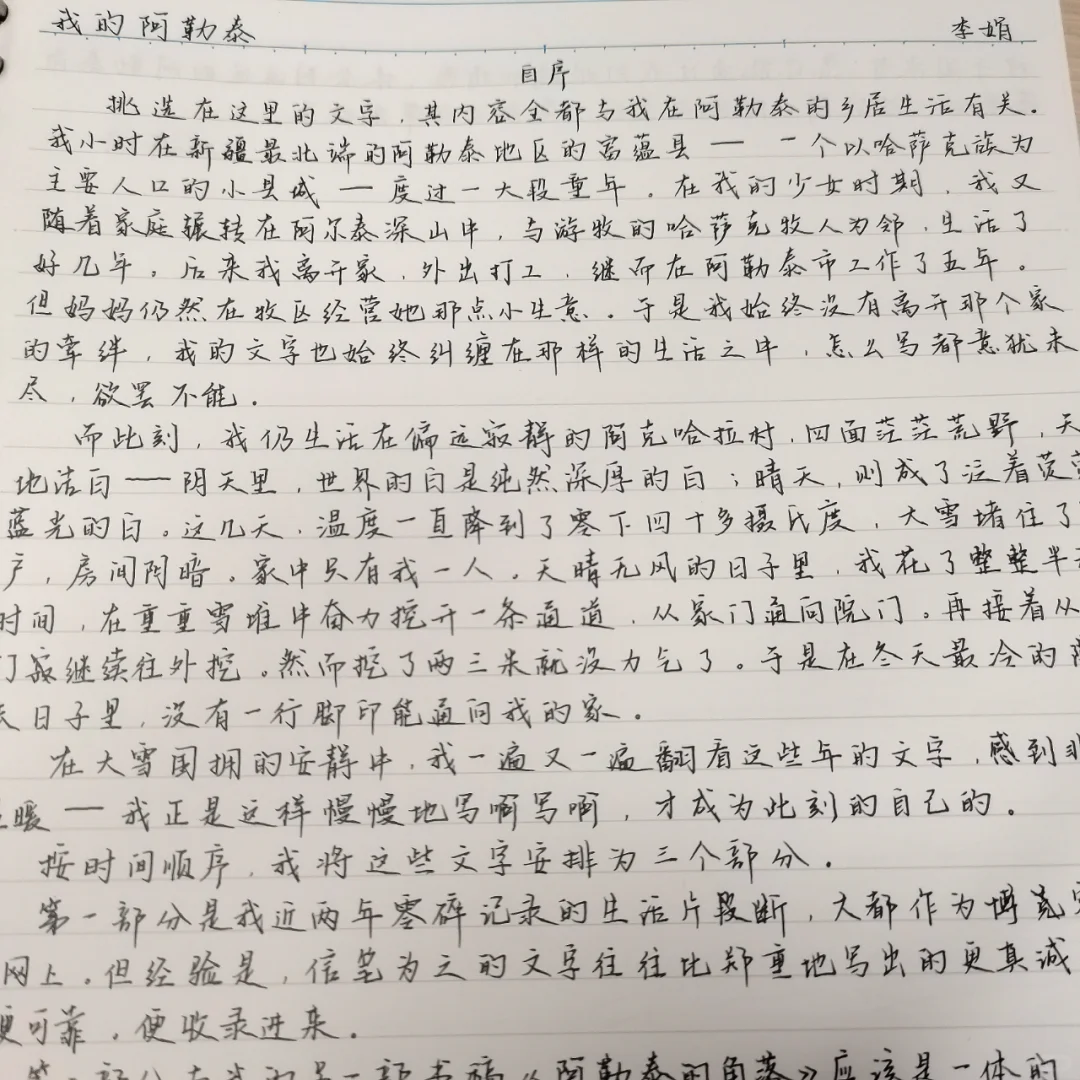 我的阿勒泰 李娟
自序
挑选在这里的文字,其内容全都与我在阿勒泰的乡居生活有关.
我小时在新疆最北端的阿勒泰地区的富蕴县——一个以哈萨克族为
主要人口的小县城——度过一大段童年。在我的少女时期,我又
随着家庭辗转在阿尔泰深山中,与游牧的哈萨克牧人为邻,生活了
好几年。后来我离开家,外出打工,继而在阿勒泰市工作了五年。
但妈妈仍然在牧区经营她那点小生意.于是我始终没有离开那个家
的牵绊,我的文字也始终纠缠在那样的生活之中,怎么写都意犹未
尽,欲罢不能.
而此刻,我仍生活在偏远寂静的阿克哈拉村,四面茫茫荒野,天
地洁白——阴天里,世界的白是纯然深厚的白;晴天,则成了泛着荧荧
蓝光的白。这几天,温度一直降到了零下四十多摄氏度,大雪堵住了
户,房间阴暗。家中只有我一人。天晴无风的日子里,我花了整整半天
时间,在重重雪堆中奋力挖开一条通道,从家门通向院门。再接着从
门继续往外挖。然而挖了两三米就没力气了。于是在冬天最冷的
日子里,没有一行脚印能通向我的家.
在大雪围拥的安静中,我一遍又一遍翻看这些年的文字,感到非
暖——我正是这样慢慢地写啊写啊,才成为此刻的自己的.
按时间顺序,我将这些文字安排为三个部分.
第一部分是我近两年零碎记录的生活片段断,大都作为博客
网上.但经验是,信笔为之的文字往往比郑重地写出的更真诚
更可靠,便收录进来.
部书稿《阿勒泰的角落》应该是一体的